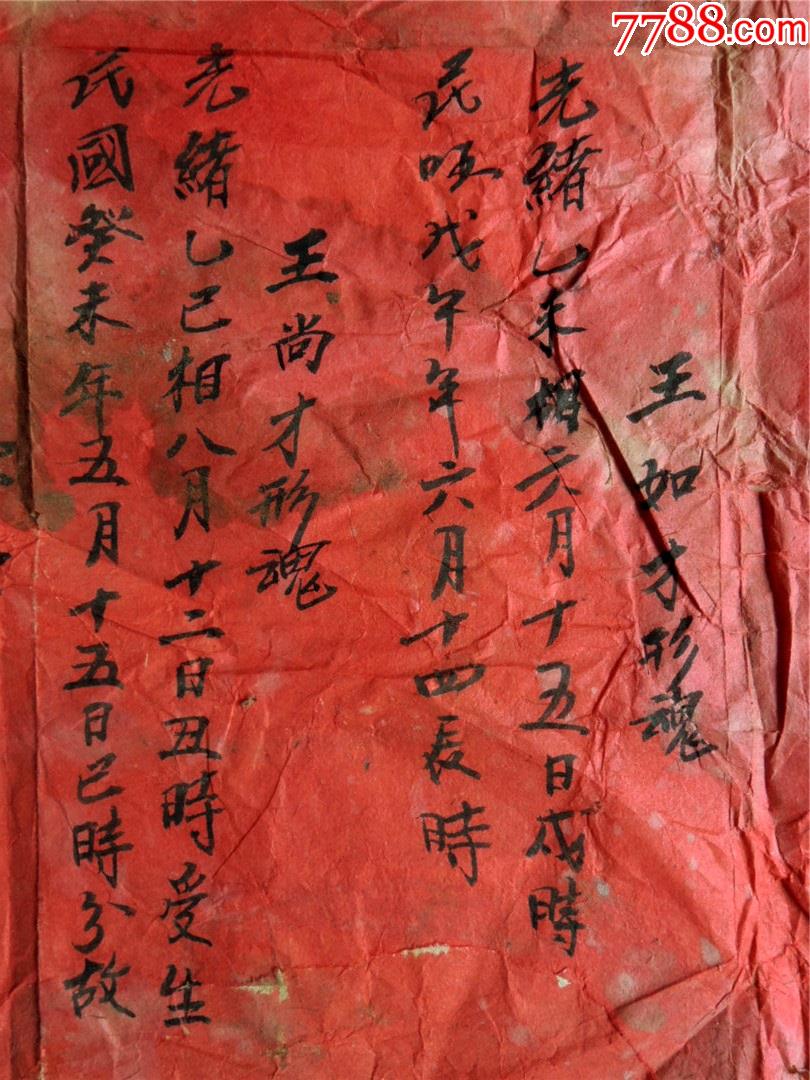 7788.com
王如才形魂
光緒乙未相六月十五日戌時
民戊午年六月十四辰時
王尚才形魂
光緒乙巳相八月十二日丑時受生
民國癸未年五月十五日巳時分故